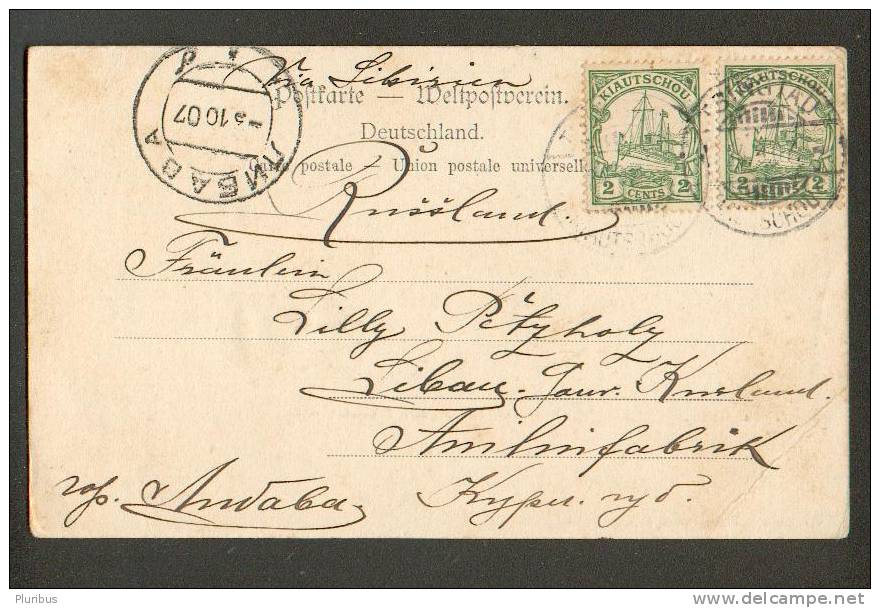 Via Sibirien
Postkarte — Weltpostverein.
Deutschland.
Carte postale — Union postale universelle
Russland.
Fräulein
Lilly Petzholz
Libau. Gouv. Kurland.
Anilinfabrik
гор. Либава. Курл. губ.
ЛИБАВА
10 07
KIAUTSCHOU
2 CENTS 2
KIAUTSCHOU
2 2
TSINGTAU
KIAUTSCHOU
Pluribus
delcampe.net